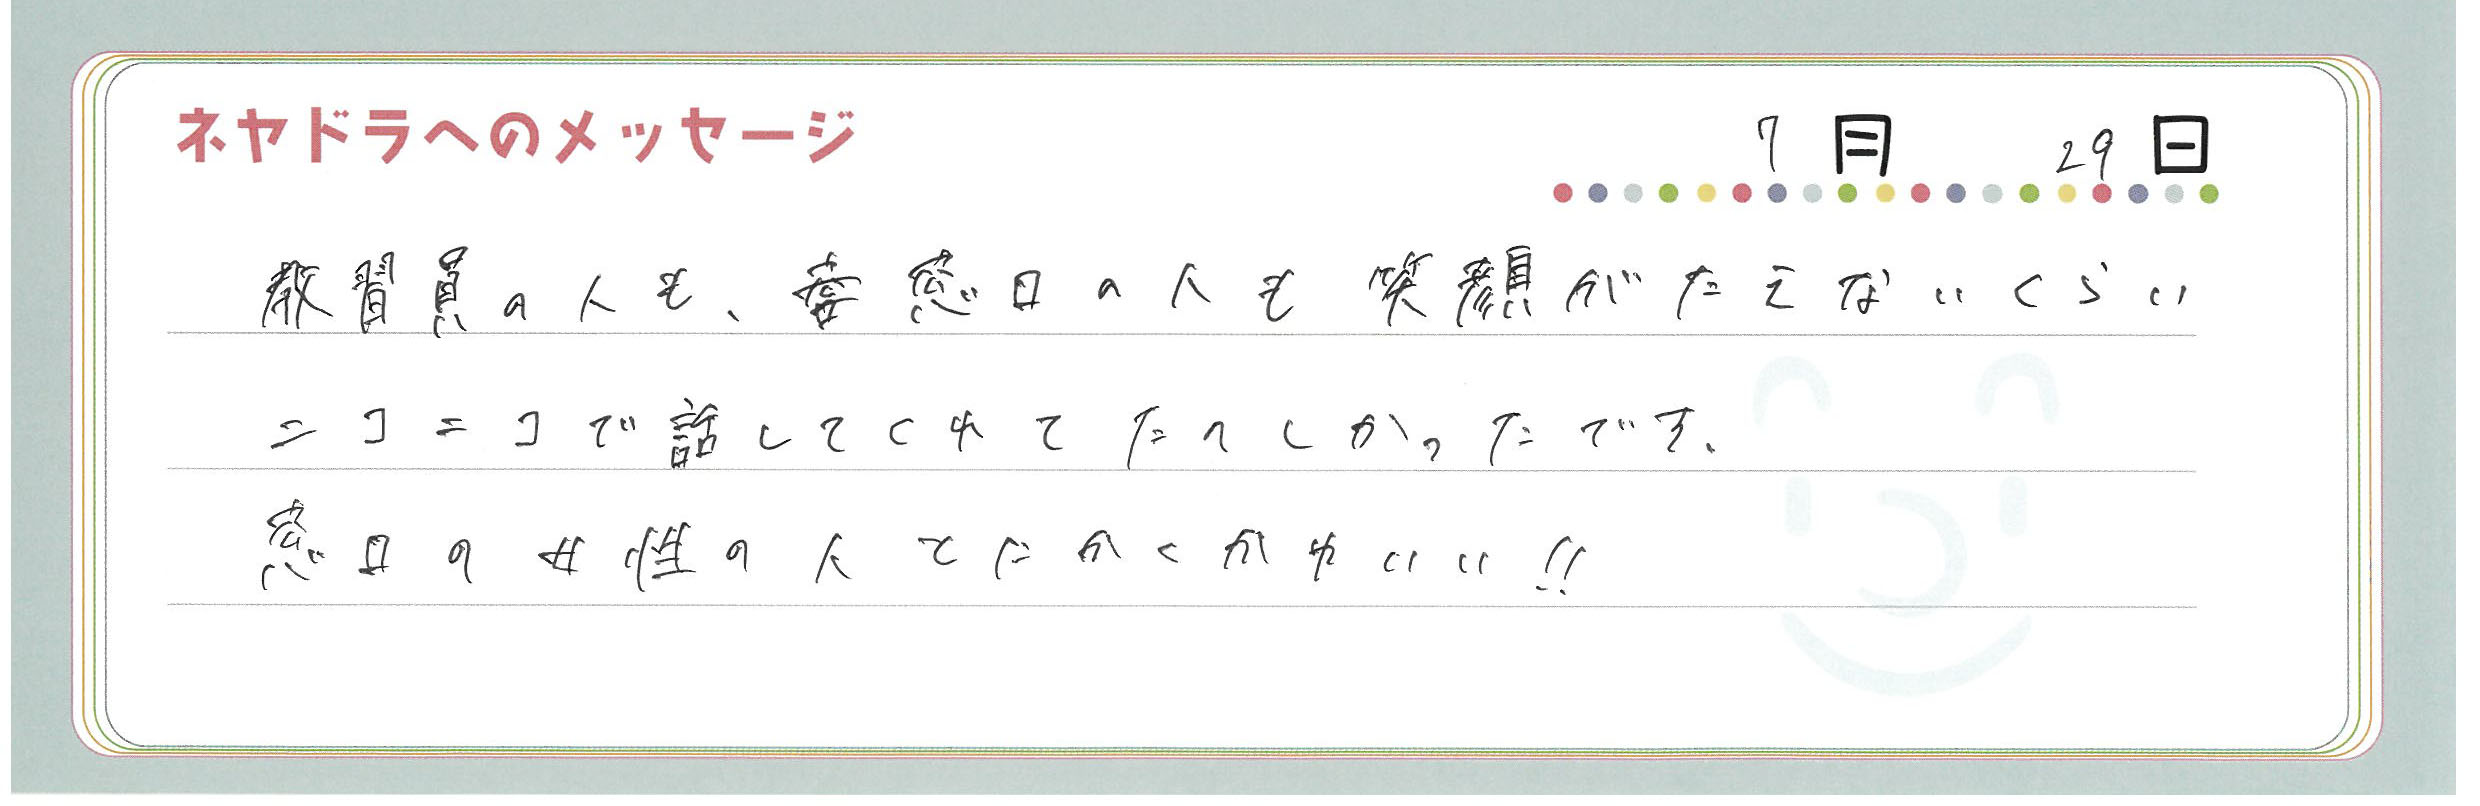 ネヤドラへのメッセージ
7月 29日
教習員の人も、窓口の人も笑顔がたえないくらい
ニコニコで話してくれてたのしかったです。
窓口の女性の人とにかくかわいい!!